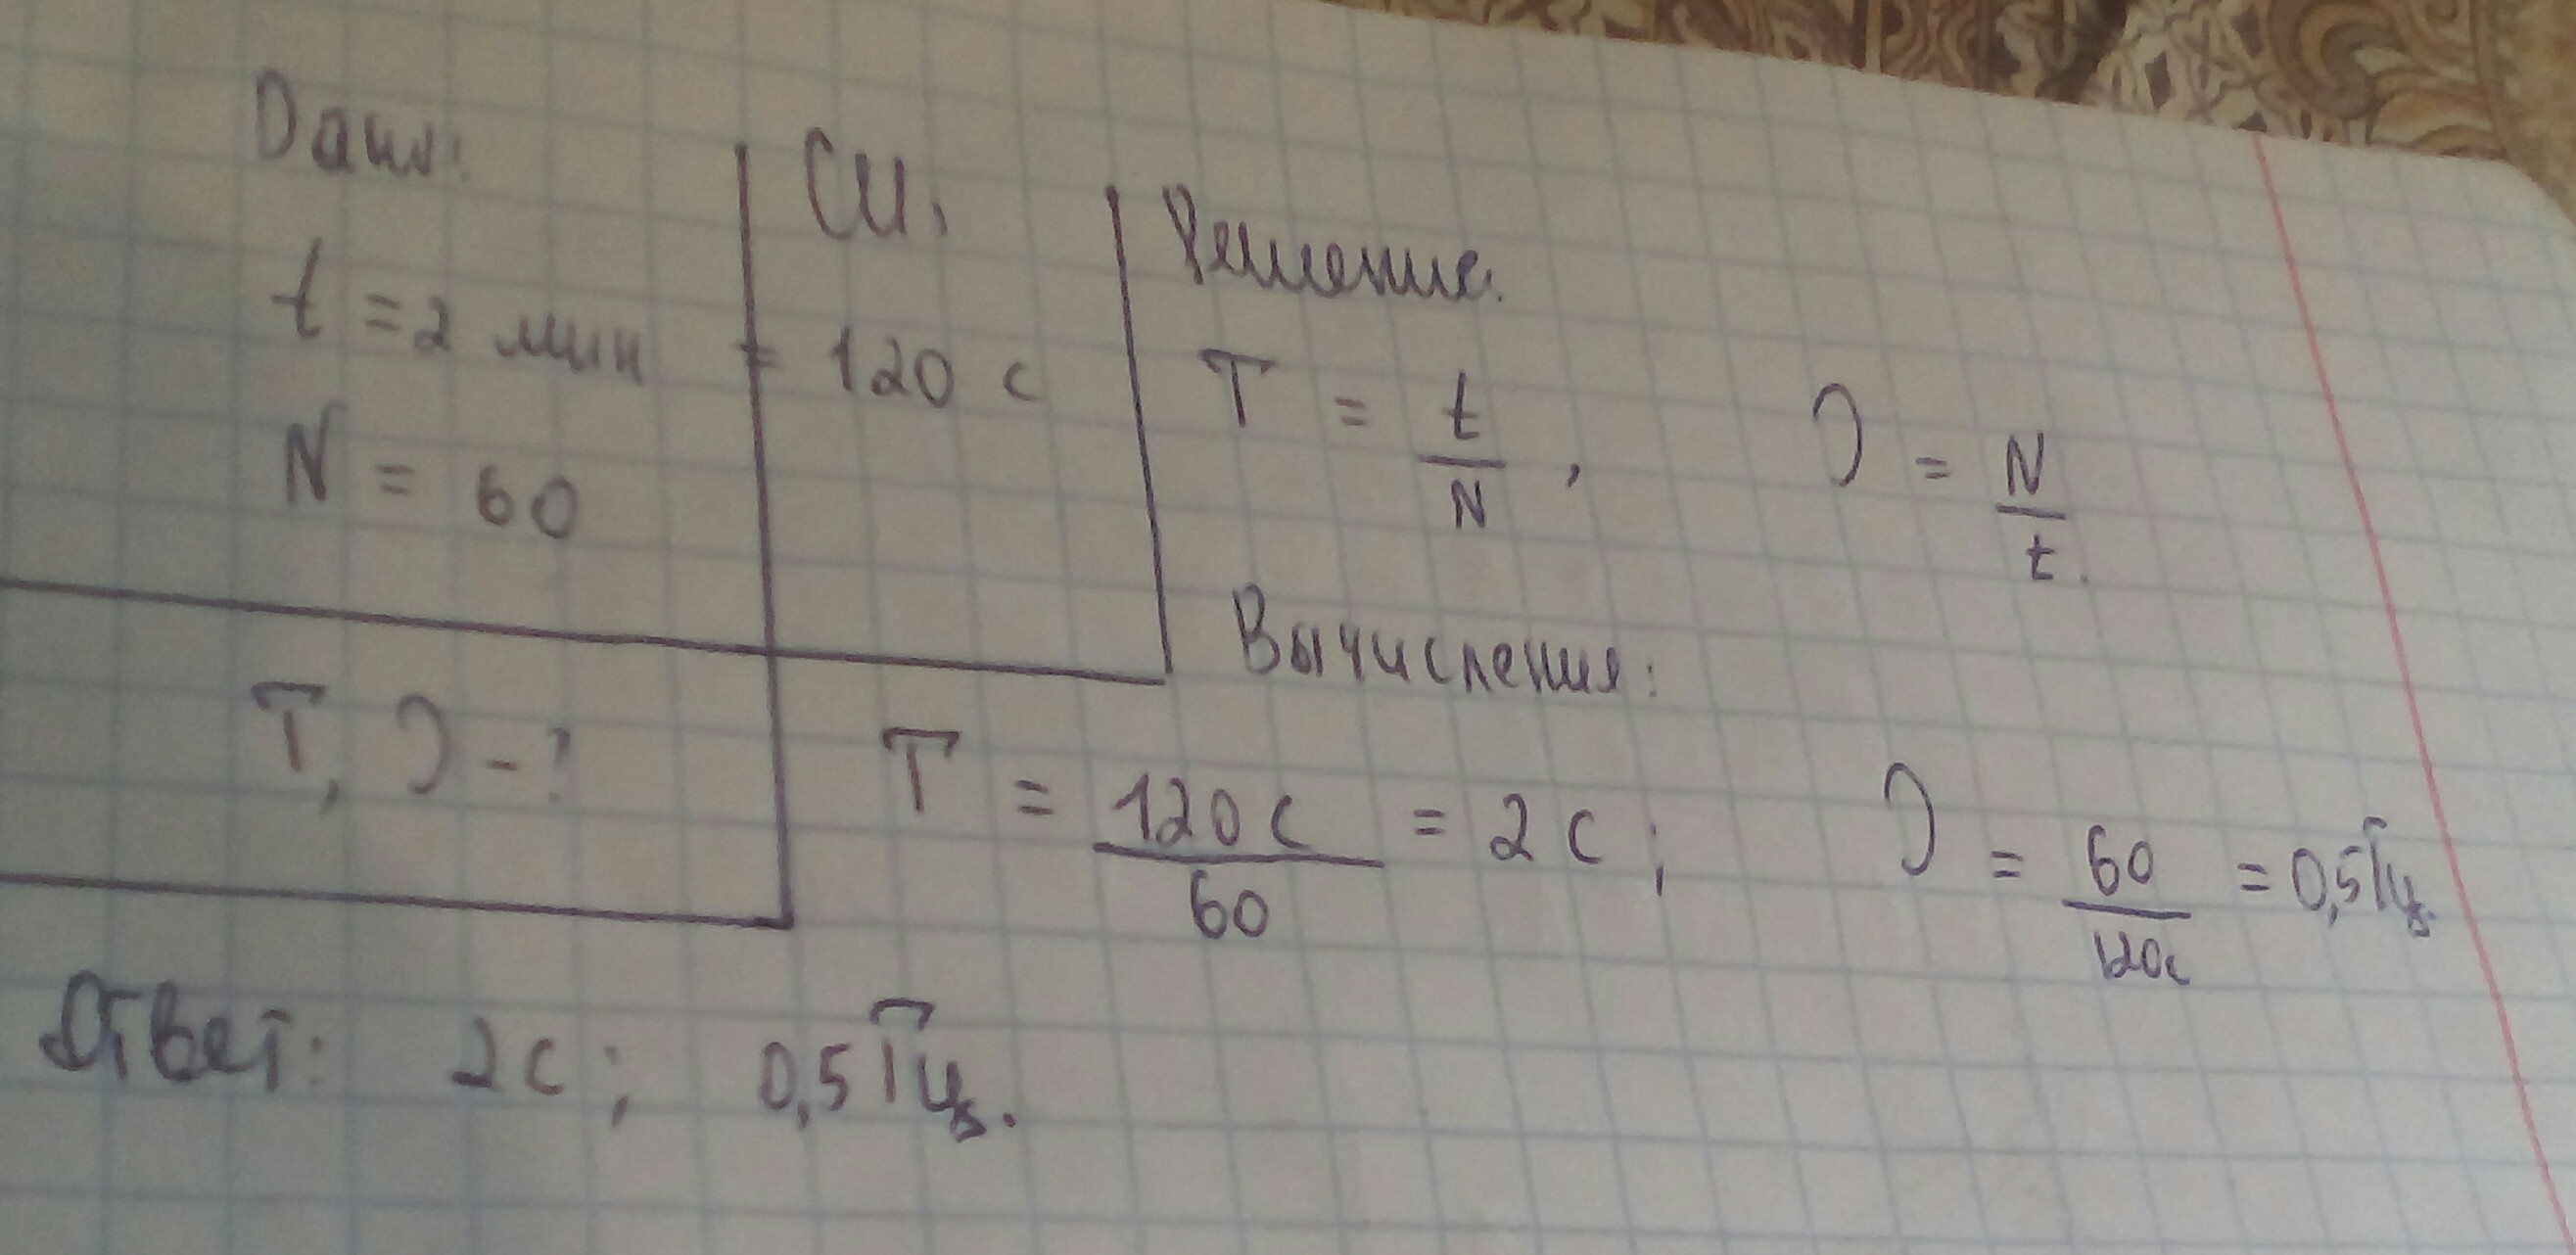 Дано:
t = 2 мин
N = 60
T, ν - ?
СИ,
= 120 с
Решение.
T = t/N, ν = N/t.
Вычисления:
T = 120 с/60 = 2 с; ν = 60/120с = 0,5 Гц.
Ответ: 2 с; 0,5 Гц.